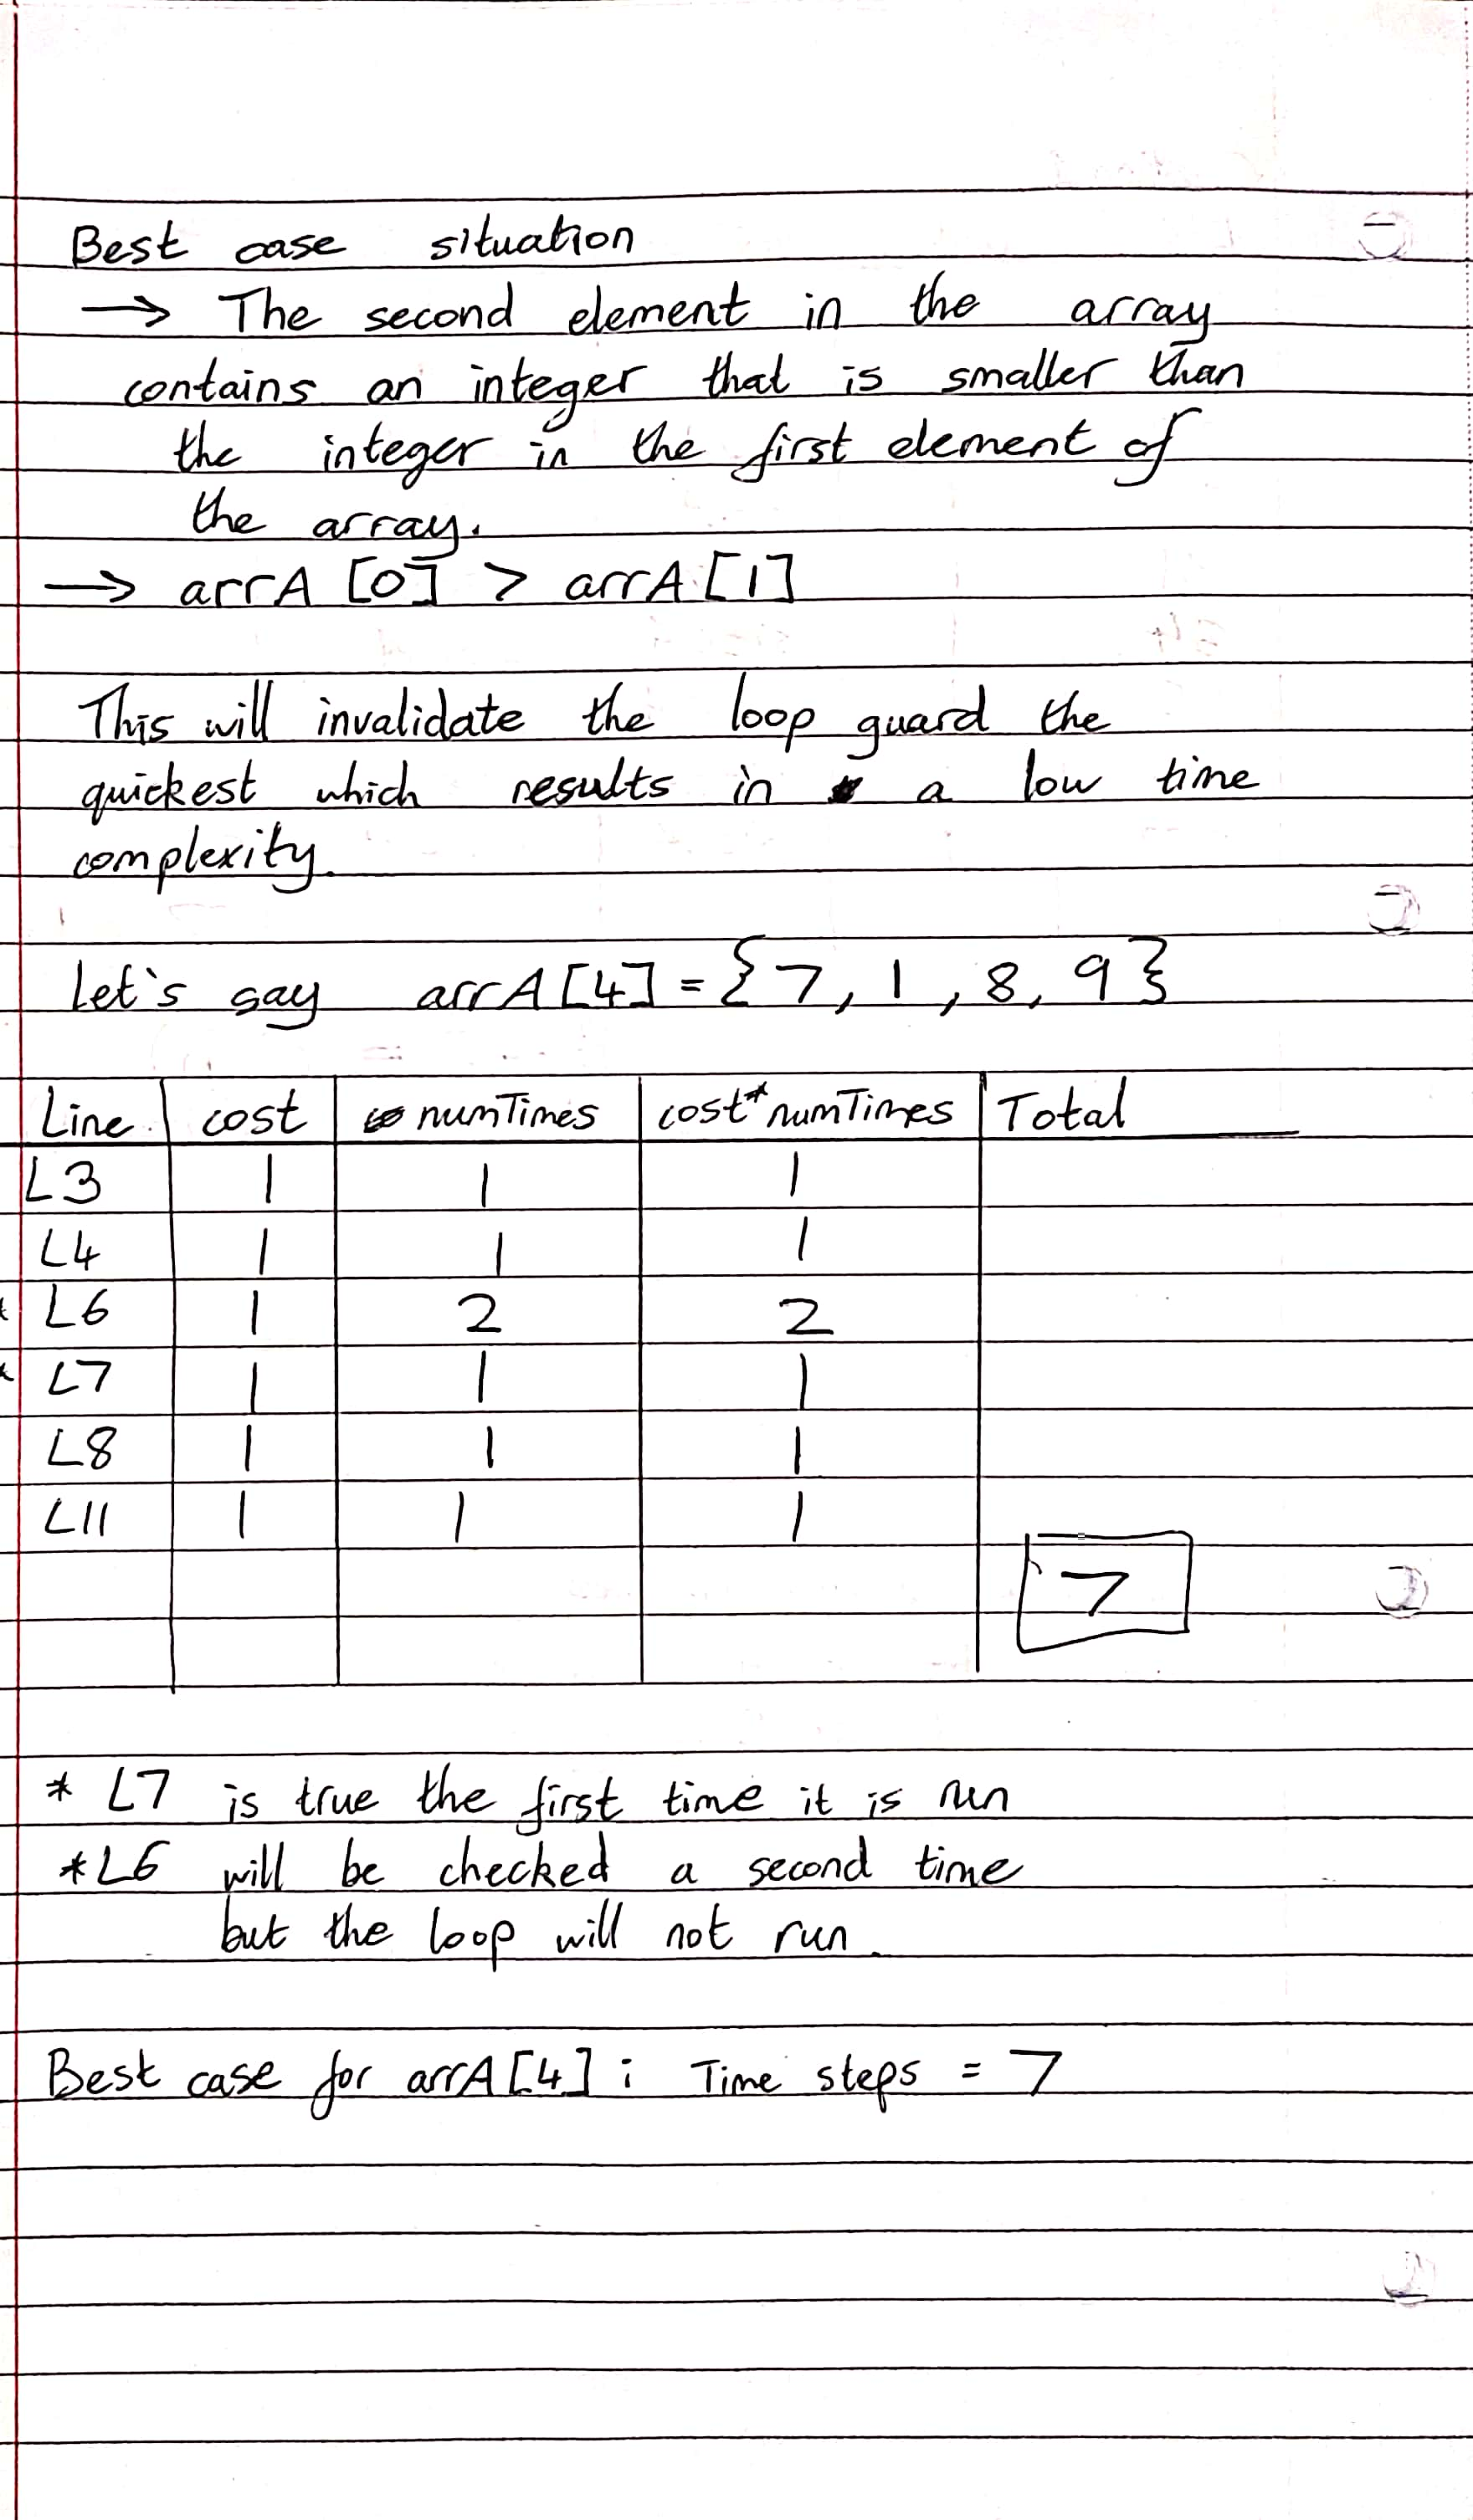 Best case situation
→ The second element in the array
contains an integer that is smaller than
the integer in the first element of
the array.
→ arrA [0] > arrA [1]
This will invalidate the loop guard the
quickest which results in a low time
complexity.
Let's say arrA [4] = {7, 1, 8, 9}
Line cost numTimes cost*numTimes Total
L3 1 1 1
L4 1 1 1
* L6 1 2 2
* L7 1 1 1
L8 1 1 1
L11 1 1 1
7
* L7 is true the first time it is run
* L6 will be checked a second time
but the loop will not run.
Best case for arrA [4] : Time steps = 7